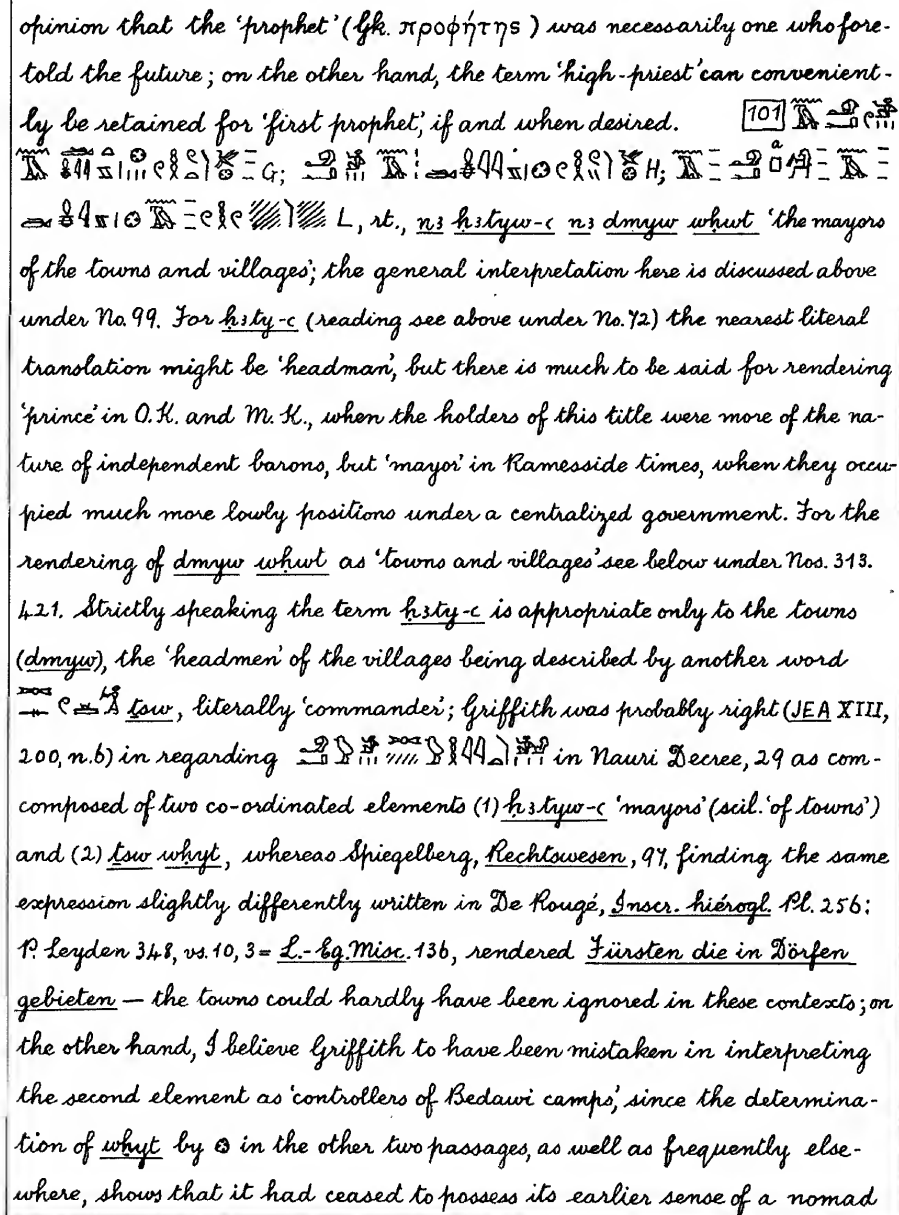 opinion that the 'prophet' (Gk. προφήτης) was necessarily one who fore-
told the future; on the other hand, the term 'high-priest' can convenient-
ly be retained for 'first prophet', if and when desired. 101
G; H;
L, rt., nꜣ ḥꜣtyw-ꜥ nꜣ dmyw wḥwt 'the mayors
of the towns and villages'; the general interpretation here is discussed above
under No. 99. For ḥꜣty-ꜥ (reading see above under No. 72) the nearest literal
translation might be 'headman', but there is much to be said for rendering
'prince' in O.K. and M.K., when the holders of this title were more of the na-
ture of independent barons, but 'mayor' in Ramesside times, when they occu-
pied much more lowly positions under a centralized government. For the
rendering of dmyw wḥwt as 'towns and villages' see below under Nos. 313.
421. Strictly speaking the term ḥꜣty-ꜥ is appropriate only to the towns
(dmyw), the 'headmen' of the villages being described by another word
ṯsw, literally 'commander'; Griffith was probably right (JEA XIII,
200, n.6) in regarding in Nauri Decree, 29 as com-
composed of two co-ordinated elements (1) ḥꜣtyw-ꜥ 'mayors' (scil. 'of towns')
and (2) ṯsw wḥyt, whereas Spiegelberg, Rechtswesen, 97, finding the same
expression slightly differently written in De Rougé, Inscr. hiérogl. Pl. 256:
P. Leyden 348, vs. 10, 3 = L.-Eg. Misc. 136, rendered Fürsten die in Dörfen
gebieten — the towns could hardly have been ignored in these contexts; on
the other hand, I believe Griffith to have been mistaken in interpreting
the second element as 'controllers of Bedawi camps', since the determina-
tion of wḥyt by 𓊖 in the other two passages, as well as frequently else-
where, shows that it had ceased to possess its earlier sense of a nomad